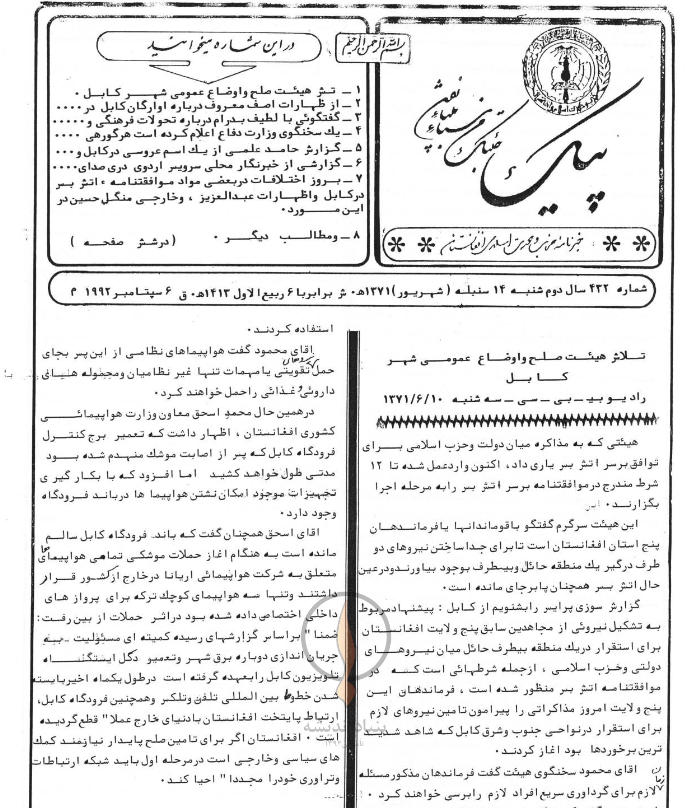 بسم الله الرحمن الرحیم
پیک
خبرنامه حزب وحدت اسلامی افغانستان
در این شماره میخوانید
۱ ــ تلاش هیئت صلح واوضاع عمومی شهر کابل ۰
۲ ــ از ظهارات اصف معروف درباره اوارگان کابل در ۰۰۰۰
۳ ــ گفتگوئی با لطیف بدرام درباره تحولات فرهنگی و ۰۰۰۰۰
۴ ــ یک سخنگوی وزارت دفاع اعلام کرده است هرگورهی ۰۰۰۰
۵ ــ گزارش حامد علمی از یک اسم عروسی درکابل و ۰۰۰
۶ ــ گزارشی از خبرنگار محلی سرویس اردوی دری صدای ۰۰۰۰
۷ ــ بروز اختلافات دربعضی مواد موافقتنامه ء اتش بس
درکابل واظهارات عبدالعزیز ، وخارجی منگل حسین در
این مـــورد ۰
۸ ــ ومطالب دیگر ۰ ( درشش صفحه )
شماره ۴۳۲ سال دوم شنبه ۱۴ سنبله ( شهریور ) ۱۳۷۱ه۰ ش برابربا ۶ ربیع الاول ۱۴۱۳ه۰ ق ۶ سپتامبر ۱۹۹۲ م
تلاش هیئت صلح واوضاع عمومی شهر
کابل
رادیو بی ــ بی ــ سی ــ سه شنبه ۱۳۷۱/۶/۱۰
هیئتی که به مذاکره میان دولت وحزب اسلامی برای
توافق برسر اتش بس یاری داد ، اکنون واردعمل شده تا ۱۲
شرط مندرج درموافقتنامه برسر اتش بس رابه مرحله اجرا
بگزارند ۰
این هیئت سرگرم گفتگو باقوماندانها یافرماندهان
پنج استان افغانستان است تابرای جداساختن نیروهای دو
طرف درگیر یک منطقه حائل وبیطرف بوجود بیاورندودرعین
حال اتش بس همچنان پابرجای مانده است ۰
گزارش سوزی پرایس رابشنویم از کابل : پیشنهادمربوط
به تشکیل نیروئی از مجاهدین سابق پنج ولایت افغانستان
برای استقرار دریک منطقه بیطرف حائل میان نیروهای
دولتی وحزب اسلامی ، ازجمله شرطهائی است که در
موافقتنامه اتش بس منظور شده است ، فرماندهان این
پنج ولایت امروز مذاکراتی را پیرامون تامین نیروهای لازم
برای استقرار درنواحی جنوب وشرق کابل که شاهد شدید
ترین برخوردها بود اغاز کردند ۰
اقای محمود سخنگوی هیئت گفت فرماندهان مذکورمسئله
زمان لازم برای گرداوری سریع افراد لازم رابرسی خواهند کرد ۰
استفاده کردند ۰
اقای محمود گفت هواپیماهای نظامی از این پس بجای
حمل نیروهای تقویتی یامهمات تنها غیر نظامیان ومحموله هــای
داروئی وغذائی راحمل خواهند کرد ۰
درهمین حال محمد اسحق معاون وزارت هواپیمائی
کشوری افغانستان ، اظهار داشت که تعمیر برج کنترل
فرودگاه کابل که پس از اصابت موشک منهدم شده بود
مدتی طول خواهد کشید اما افزود که با بکار گیری
تجهیزات موجود امکان نشتن هواپیما ها درباند فرودگاه
وجود دارد ۰
اقای اسحق همچنان گفت که باند فرودگاه کابل سالم
مانده است به هنگام اغاز حملات موشکی تمامی هواپیماهای
متعلق به شرکت هواپیمائی اریانا درخارج ازکشور قرار
داشتند وتنها سه هواپیمای کوچک ترکه برای پرواز های
داخلی اختصاص داده شده بود دراثر حملات از بین رفت :
ضمنا" براساس گزارشهای رسیده کمیته ای مسئولیت
جریان اندازی دوباره برق شهر وتعمیر دکل ایستگاه
تلویزیون کابل رابعهده گرفته است درطول یکماه اخیربابسته
شدن خطوط بین المللی تلفن وتلکس وهمچنین فرودگاه کابل ،
ارتباط پایتخت افغانستان بادنیای خارج عملا" قطع گردیده
است ۰ افغانستان اگر برای تامین صلح پایدار نیازمند کمک
های سیاسی وخارجی است درمرحله اول باید شبکه ارتباطات
وتراوری خودرا مجددا" احیا کند ۰
بنیاد اندیشه